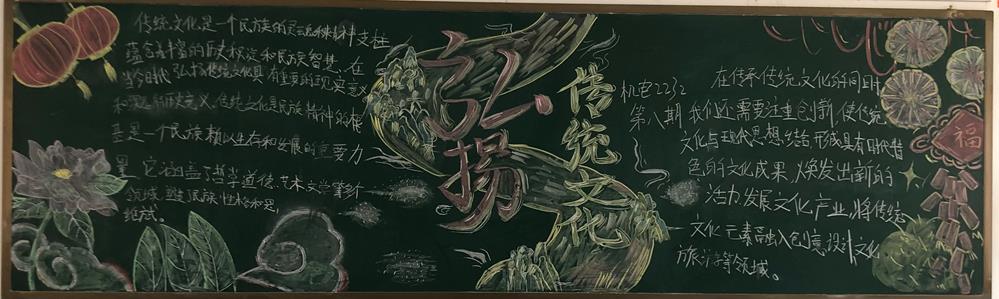 传统文化是一个民族的灵魂和精神支柱
蕴含着丰富的历史积淀和民族智慧、在
当今时代弘扬传统文化具有重要的现实意义
和深远的历史意义、传统文化是民族精神的根
基是一个民族赖以生存和发展的重要力
量、它涵盖了哲学道德、艺术文学等
领域 塑 民族性格和思
维
弘扬
传统文化
机电2232
第八期
在传承传统文化的同时
我们还需要注重创新,使传统
文化与现代思想结合形成具有时代特
色的文化成果,焕发出新的
活力发展文化产业,将传统
文化元素融入创意,设计文化
旅游等领域。
福